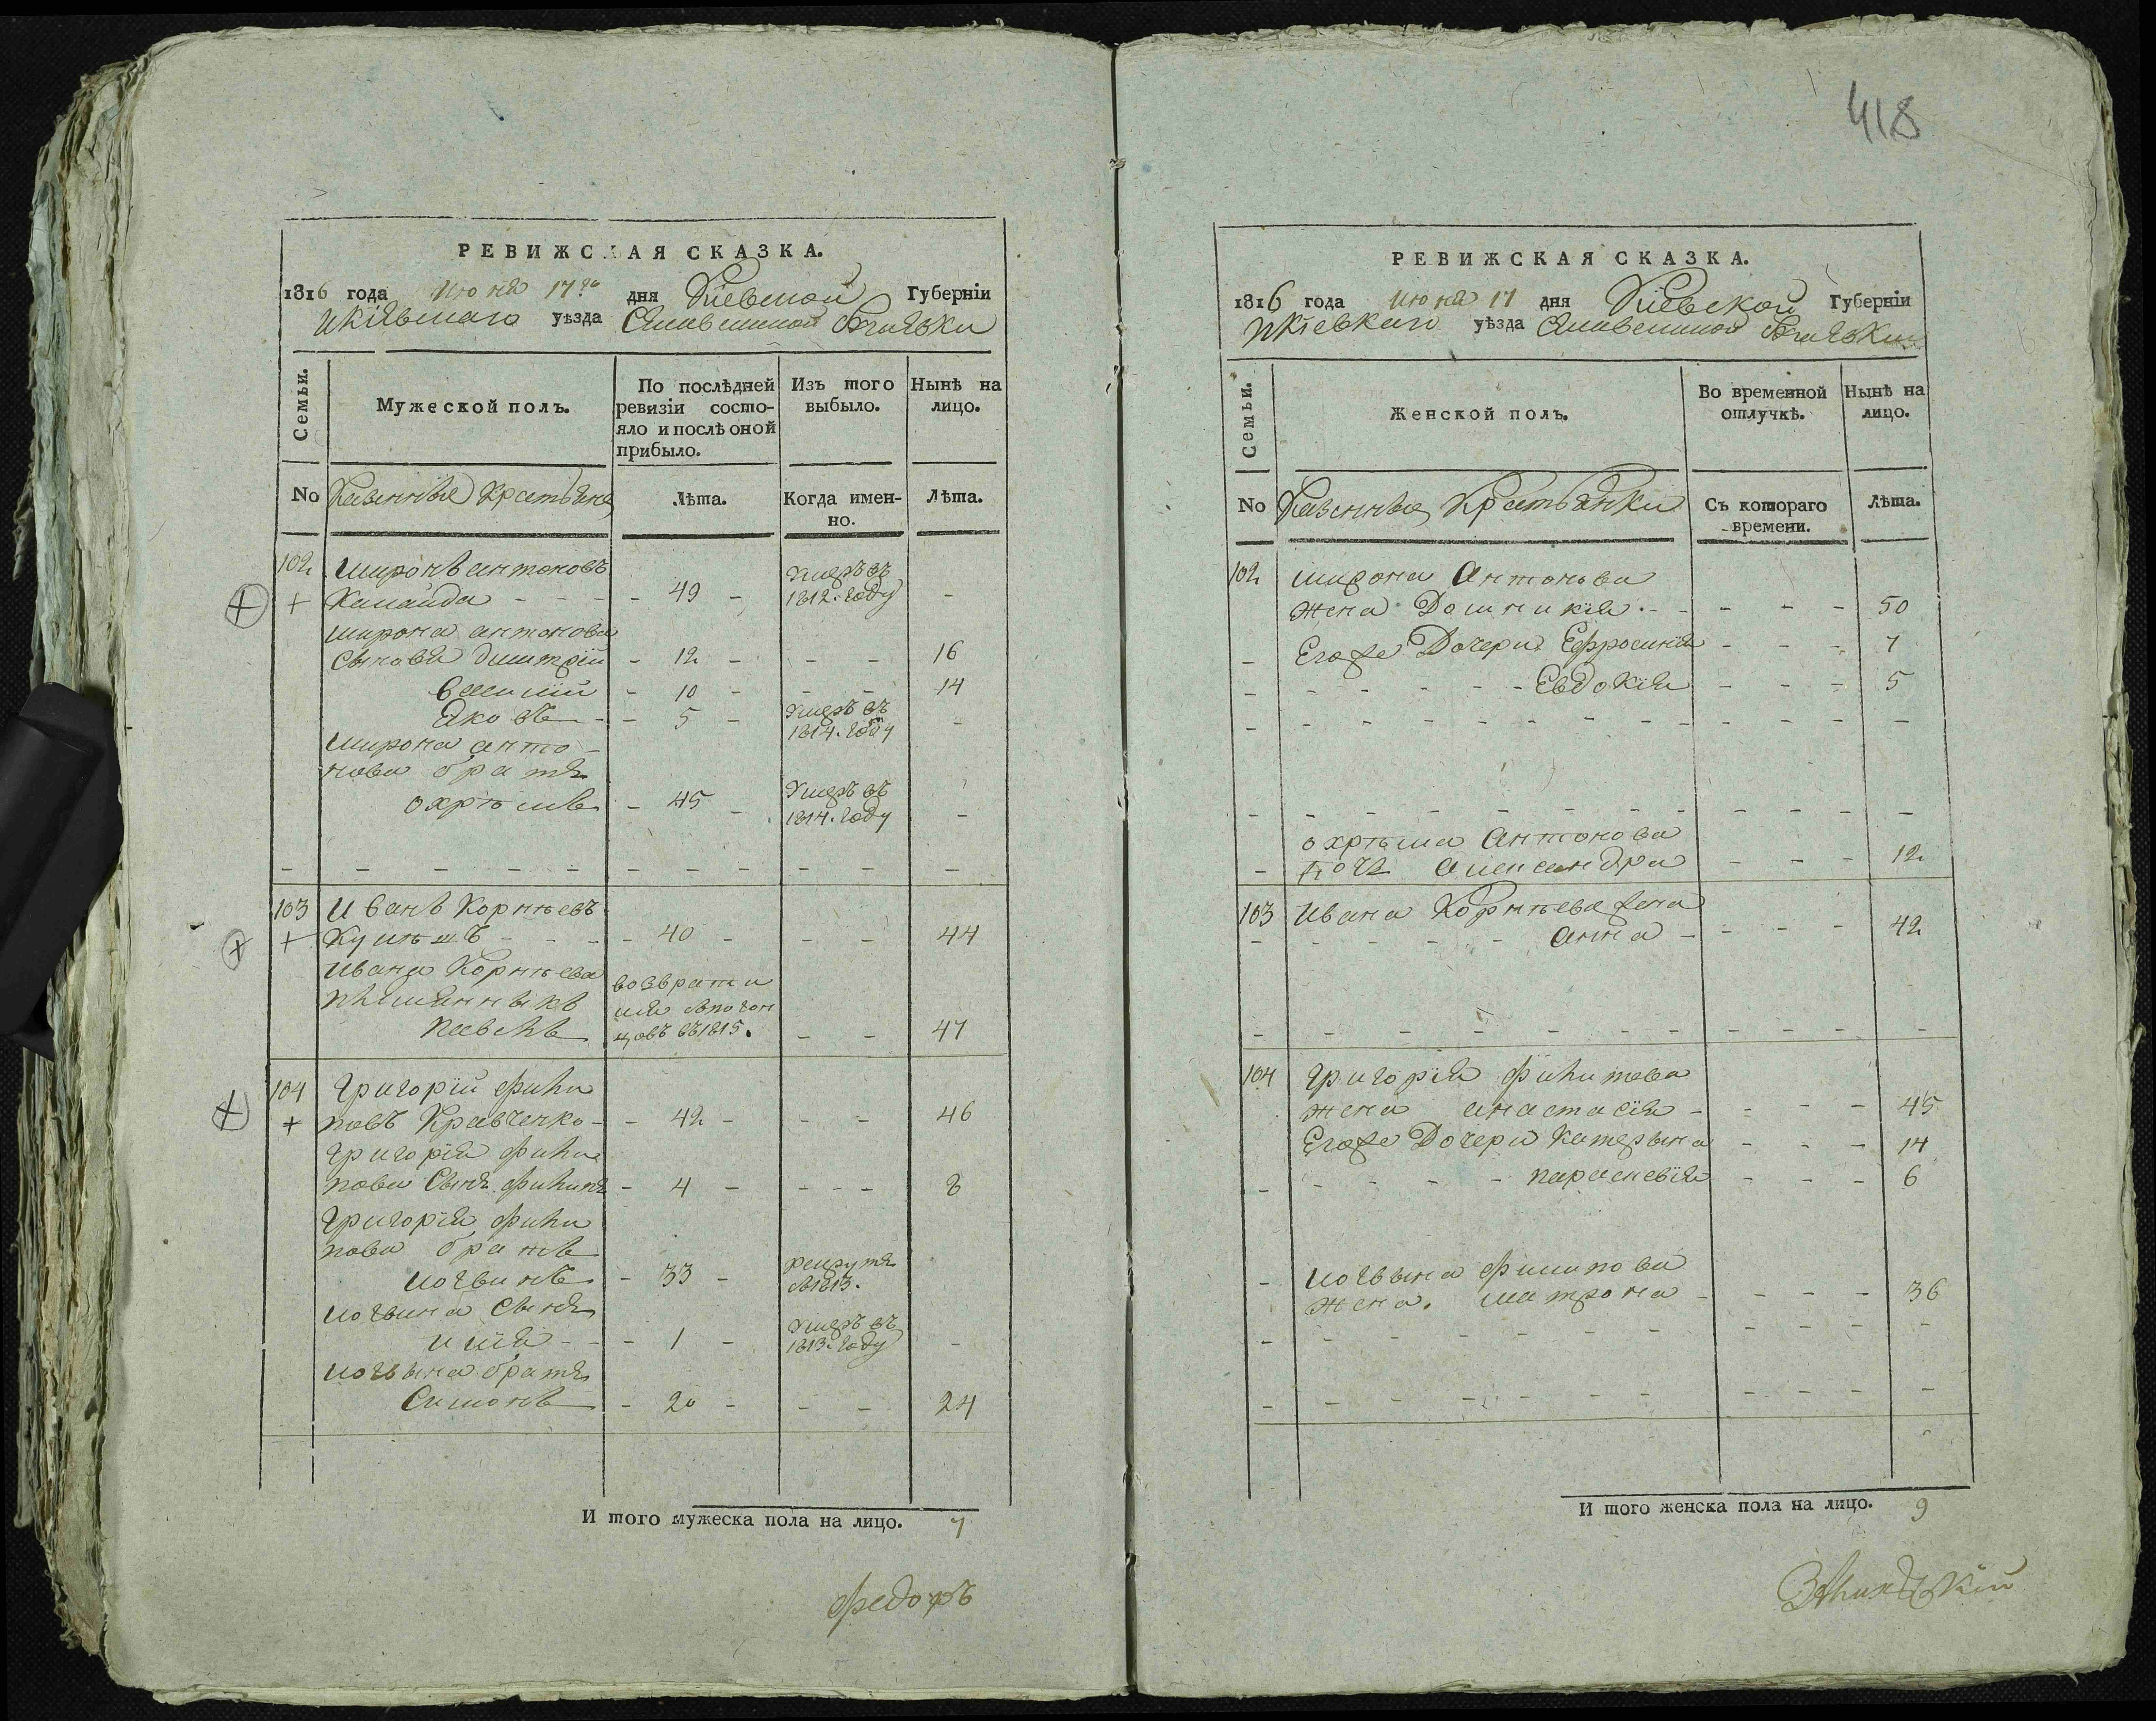 418
РЕВИЖСКАЯ СКАЗКА.
1816 года Июня 17го дня Кіевской Губерніи
уѣзда
Семьи.
Мужеской полъ.
По послѣдней ревизіи состо-
яло и послѣ оной
прибыло.
Изъ того
выбыло.
Нынѣ на
лицо.
No Казенные крестьяне
Лѣта.
Когда имен-
но.
Лѣта.
102 Миронъ антоновъ
- 49 - Умеръ въ 1812. году -
Мирона антонова
сыновья димитрій - 12 - - - 16
василій - 10 - - - 14
Яковъ - 5 - Умеръ въ 1814. году -
Мирона анто-
нова братъ
охрѣмъ - 45 - Умеръ въ 1814. году -
103 Иванъ Корнѣевъ
- 40 - - - 44
Ивана Корнѣева
племянникъ
павелъ - - 47
104 Григорій фили
повъ Кравченко - - 42 - - - 46
Григорія фили
пова сынъ филипъ - 4 - - - - 8
Григорія фили
пова братъ
логвинъ - 33 - рекрутъ 1813.
логвина сынъ
илія - - 1 - Умеръ въ 1813. году -
логвина братъ
Симонъ - 20 - - - 24
И того мужеска пола на лицо. 7
Федоръ
РЕВИЖСКАЯ СКАЗКА.
1816 года Июня 17 дня Кіевской Губерніи
уѣзда
Семьи.
Женской полъ.
Во временной
отлучкѣ.
Нынѣ на
лицо.
No Казенные Крестьянки
Съ котораго
времени.
Лѣта.
102 мирона Антонова
жена Домникія - - - - 50
Егоже Дочери Ефросинія - - - 7
Евдокія - - - 5
охрѣма Антонова
дочь александра - - - 12
103 Ивана Корнѣева жена
анна - - - - 42
104 григорія филипова
жена анастасія - - - - 45
Егоже Дочери Катерына - - - 14
параскевія - - - 6
логвына филипова
жена. матрона - - - - 36
И того женска пола на лицо. 9